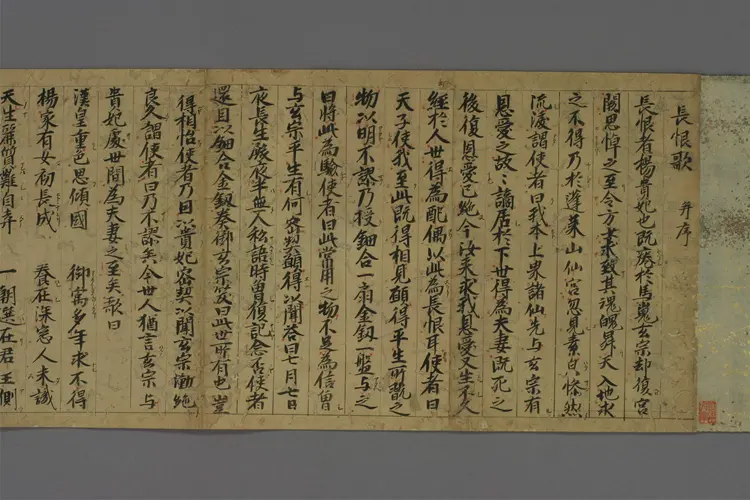 長恨歌 并序
長恨者楊貴妃也既癈於馬嵬玄宗却復宮
闕思悼之至令方士求致其魂魄昇天入地求
之不得乃於蓬萊山仙宮忽見素白慘然
流淚謂使者曰我本上界諸仙先与玄宗有
恩愛之故謫居於下世得為夫妻既死之
後復恩愛已絶今汝来求我恩愛又生不久
經於人世得為配偶以此為長恨耳使者曰
天子使我至此既得相見願得平生所翫之
物以明不謬乃授鈿合一扇金釵一股与之
曰將此為驗使者曰此常用之物不足為信曽
与玄宗平生有何密契願得以聞荅曰七月七日
夜長生殿夜半無人私語時曽復記念否使者
還且以鈿合金釵奏御玄宗笑曰此世所有也豈
得相怡使者乃因以貴妃密契以聞玄宗慟絶
良久謂使者曰乃不謬矣今世人猶言玄宗与
貴妃處世間為夫妻之至矣歌曰
漢皇重色思傾國 御寓多年求不得
楊家有女初長成 養在深窓人未識
天生麗質難自弃 一朝選在君王側